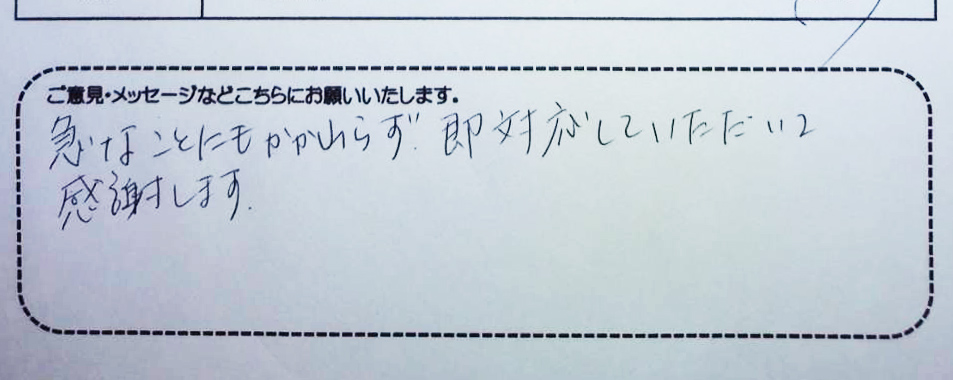 ご意見・メッセージなどこちらにお願いいたします。
急なことにもかかわらず、即対応していただいて
感謝します。